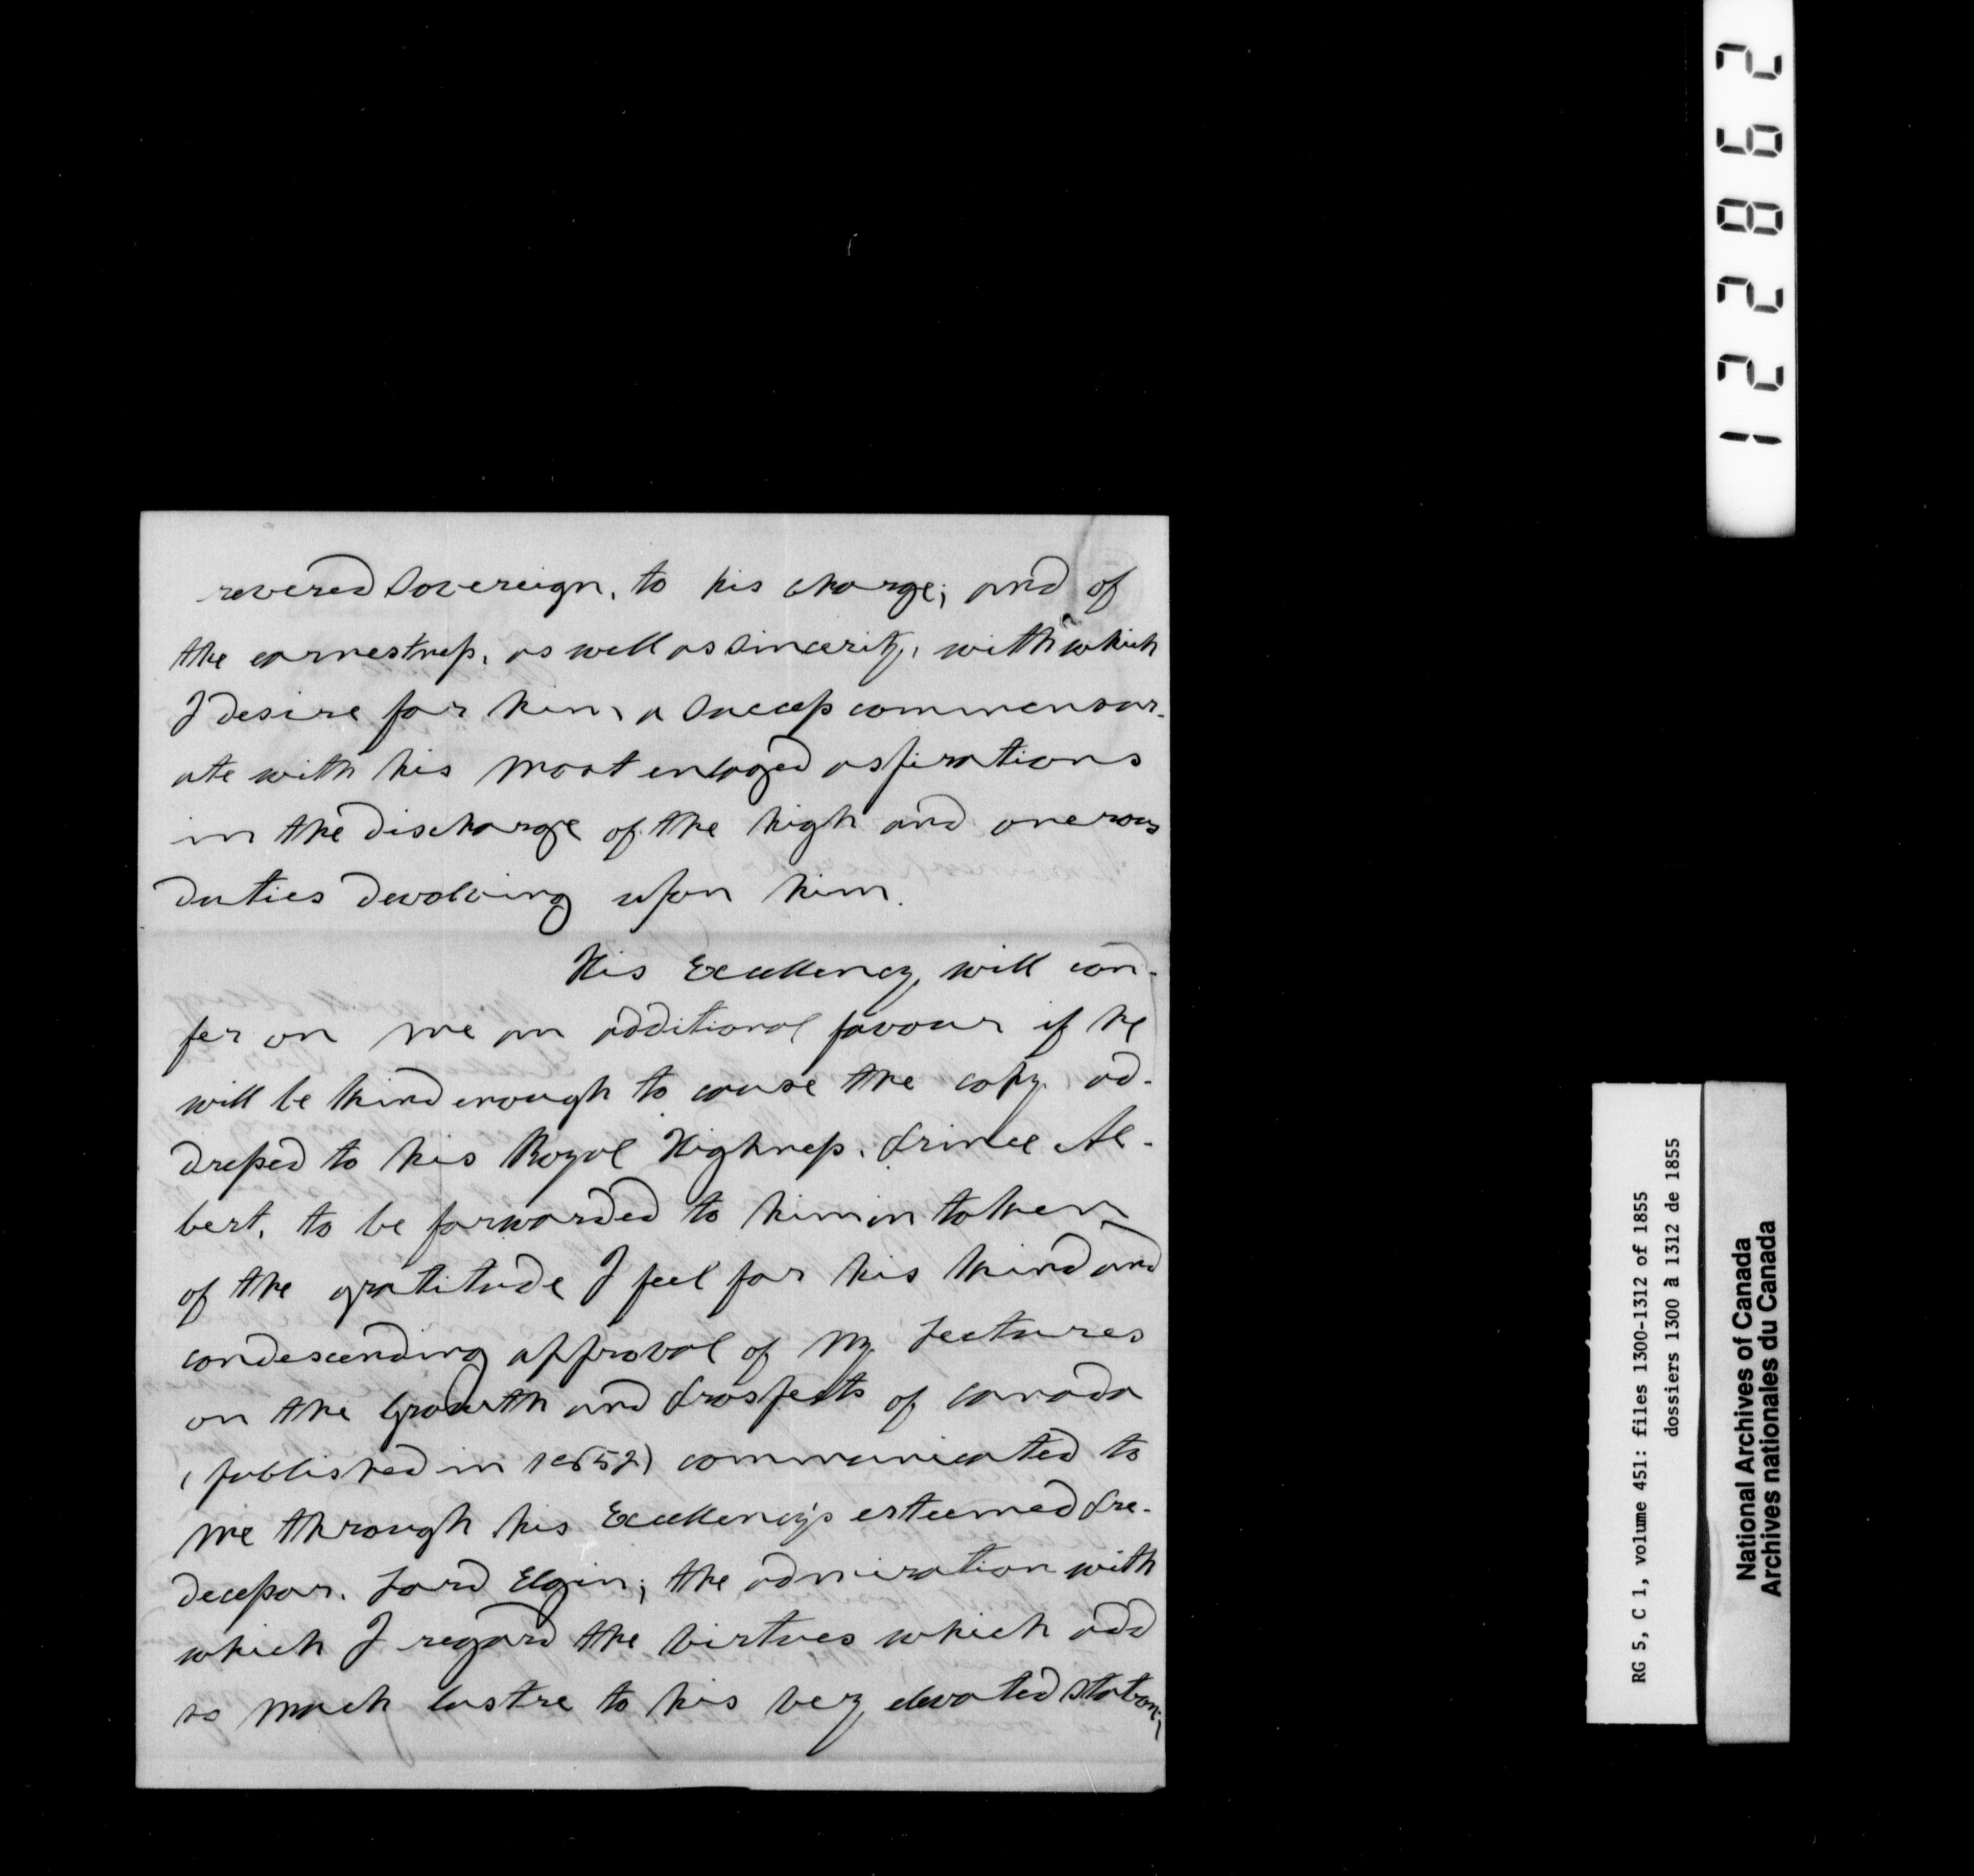 revered Sovereign, to his charge; and of
the earnestness, as well as Sincerity, with which
I desire for him, a Success commensur-
ate with his most enlaged aspirations
in the discharge of the high and onerous
duties devolving upon him.
His Excellency will con-
fer on me an additional favour if he
will be kind enough to cause the copy ad-
dressed to his Royal Highness, Prince Al-
bert, to be forwarded to him in token
of the gratitude I feel for his kind and
condescending approval of my Lectures
on the Growth and Prospects of Canada
(published in 1852) communicated to
me through his Excellency's esteemed Pre-
decessor, Lord Elgin; the admiration with
which I regard the virtues which add
so much lustre to his very elevated station;
122862
RG 5, C 1, volume 451: files 1300-1312 of 1855
dossiers 1300 à 1312 de 1855
National Archives of Canada
Archives nationales du Canada